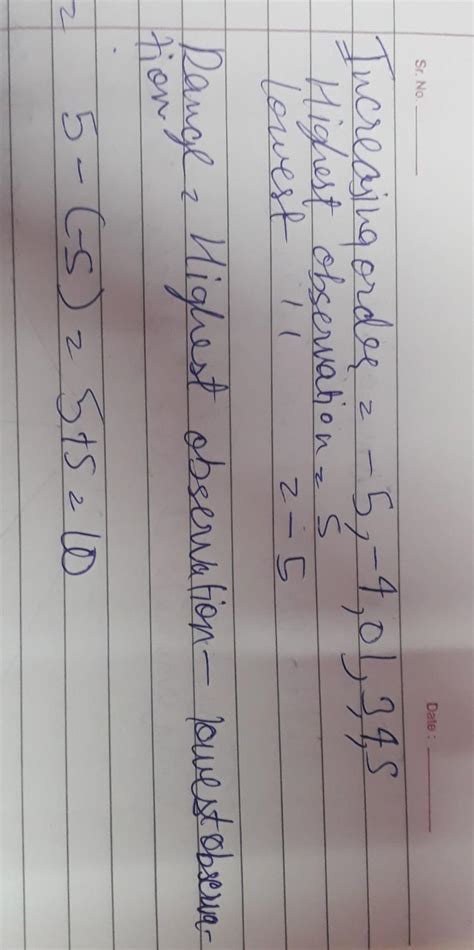 Sr. No.
Date :
Increasing order = -5, -4, 0 1, 3, 4, 5
Highest observation = 5
lowest " = -5
Range = Highest observation - lowest observa-
tion.
= 5 - (-5) = 5+5 = 10